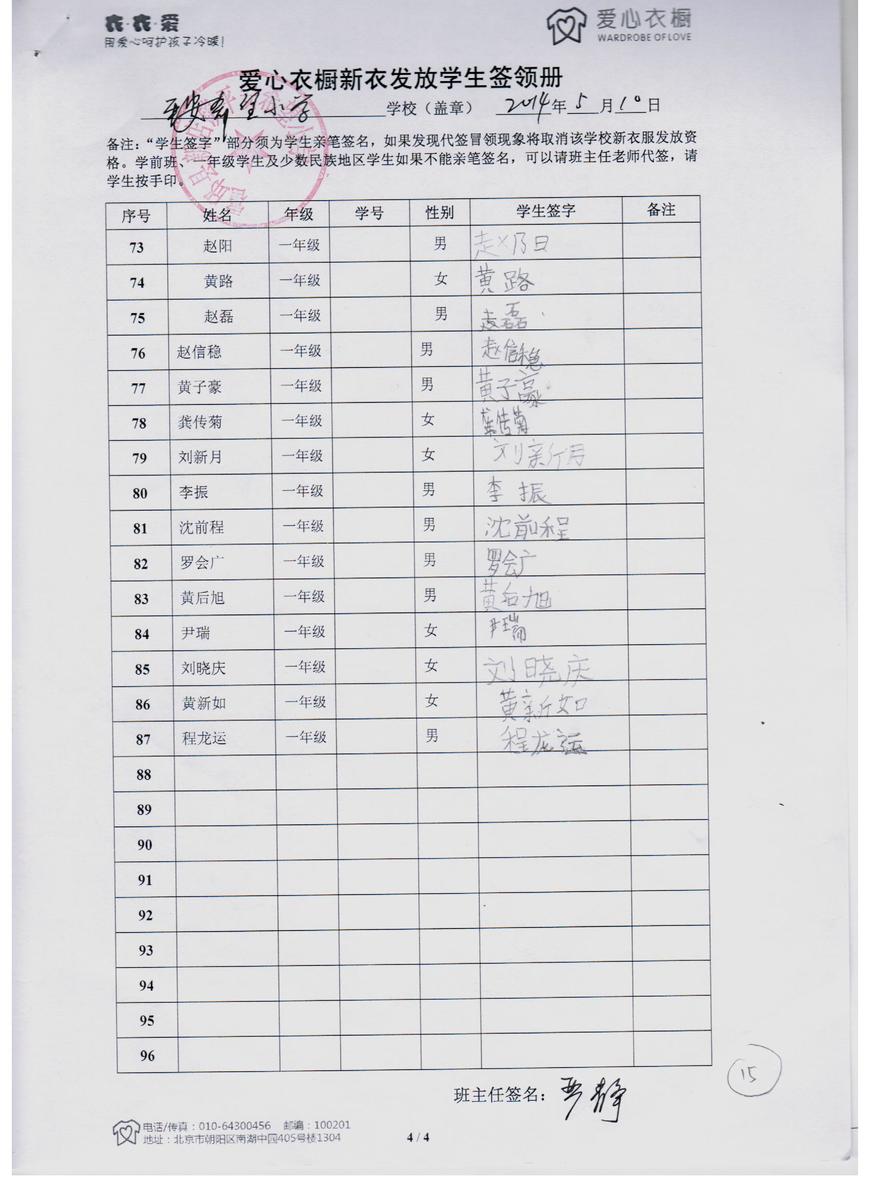 衣·衣·爱
用爱心呵护孩子冷暖!
爱心衣橱
WARDROBE OF LOVE
爱心衣橱新衣发放学生签领册
希望小学 学校（盖章） 2014年 5 月10日
备注：“学生签字”部分须为学生亲笔签名，如果发现代签冒领现象将取消该学校新衣服发放资
格。学前班、一年级学生及少数民族地区学生如果不能亲笔签名，可以请班主任老师代签，请
学生按手印。
序号 姓名 年级 学号 性别 学生签字 备注
73 赵阳 一年级 男 赵阳
74 黄路 一年级 女 黄路
75 赵磊 一年级 男 赵磊
76 赵信稳 一年级 男 赵信稳
77 黄子豪 一年级 男 黄子豪
78 龚传菊 一年级 女 龚传菊
79 刘新月 一年级 女 刘新月
80 李振 一年级 男 李振
81 沈前程 一年级 男 沈前程
82 罗会广 一年级 男 罗会广
83 黄后旭 一年级 男 黄后旭
84 尹瑞 一年级 女 尹瑞
85 刘晓庆 一年级 女 刘晓庆
86 黄新如 一年级 女 黄新如
87 程龙运 一年级 男 程龙运
88
89
90
91
92
93
94
95
96
15
班主任签名：严静
电话/传真：010-64300456 邮编：100201
地址：北京市朝阳区南湖中园405号楼1304
4 / 4